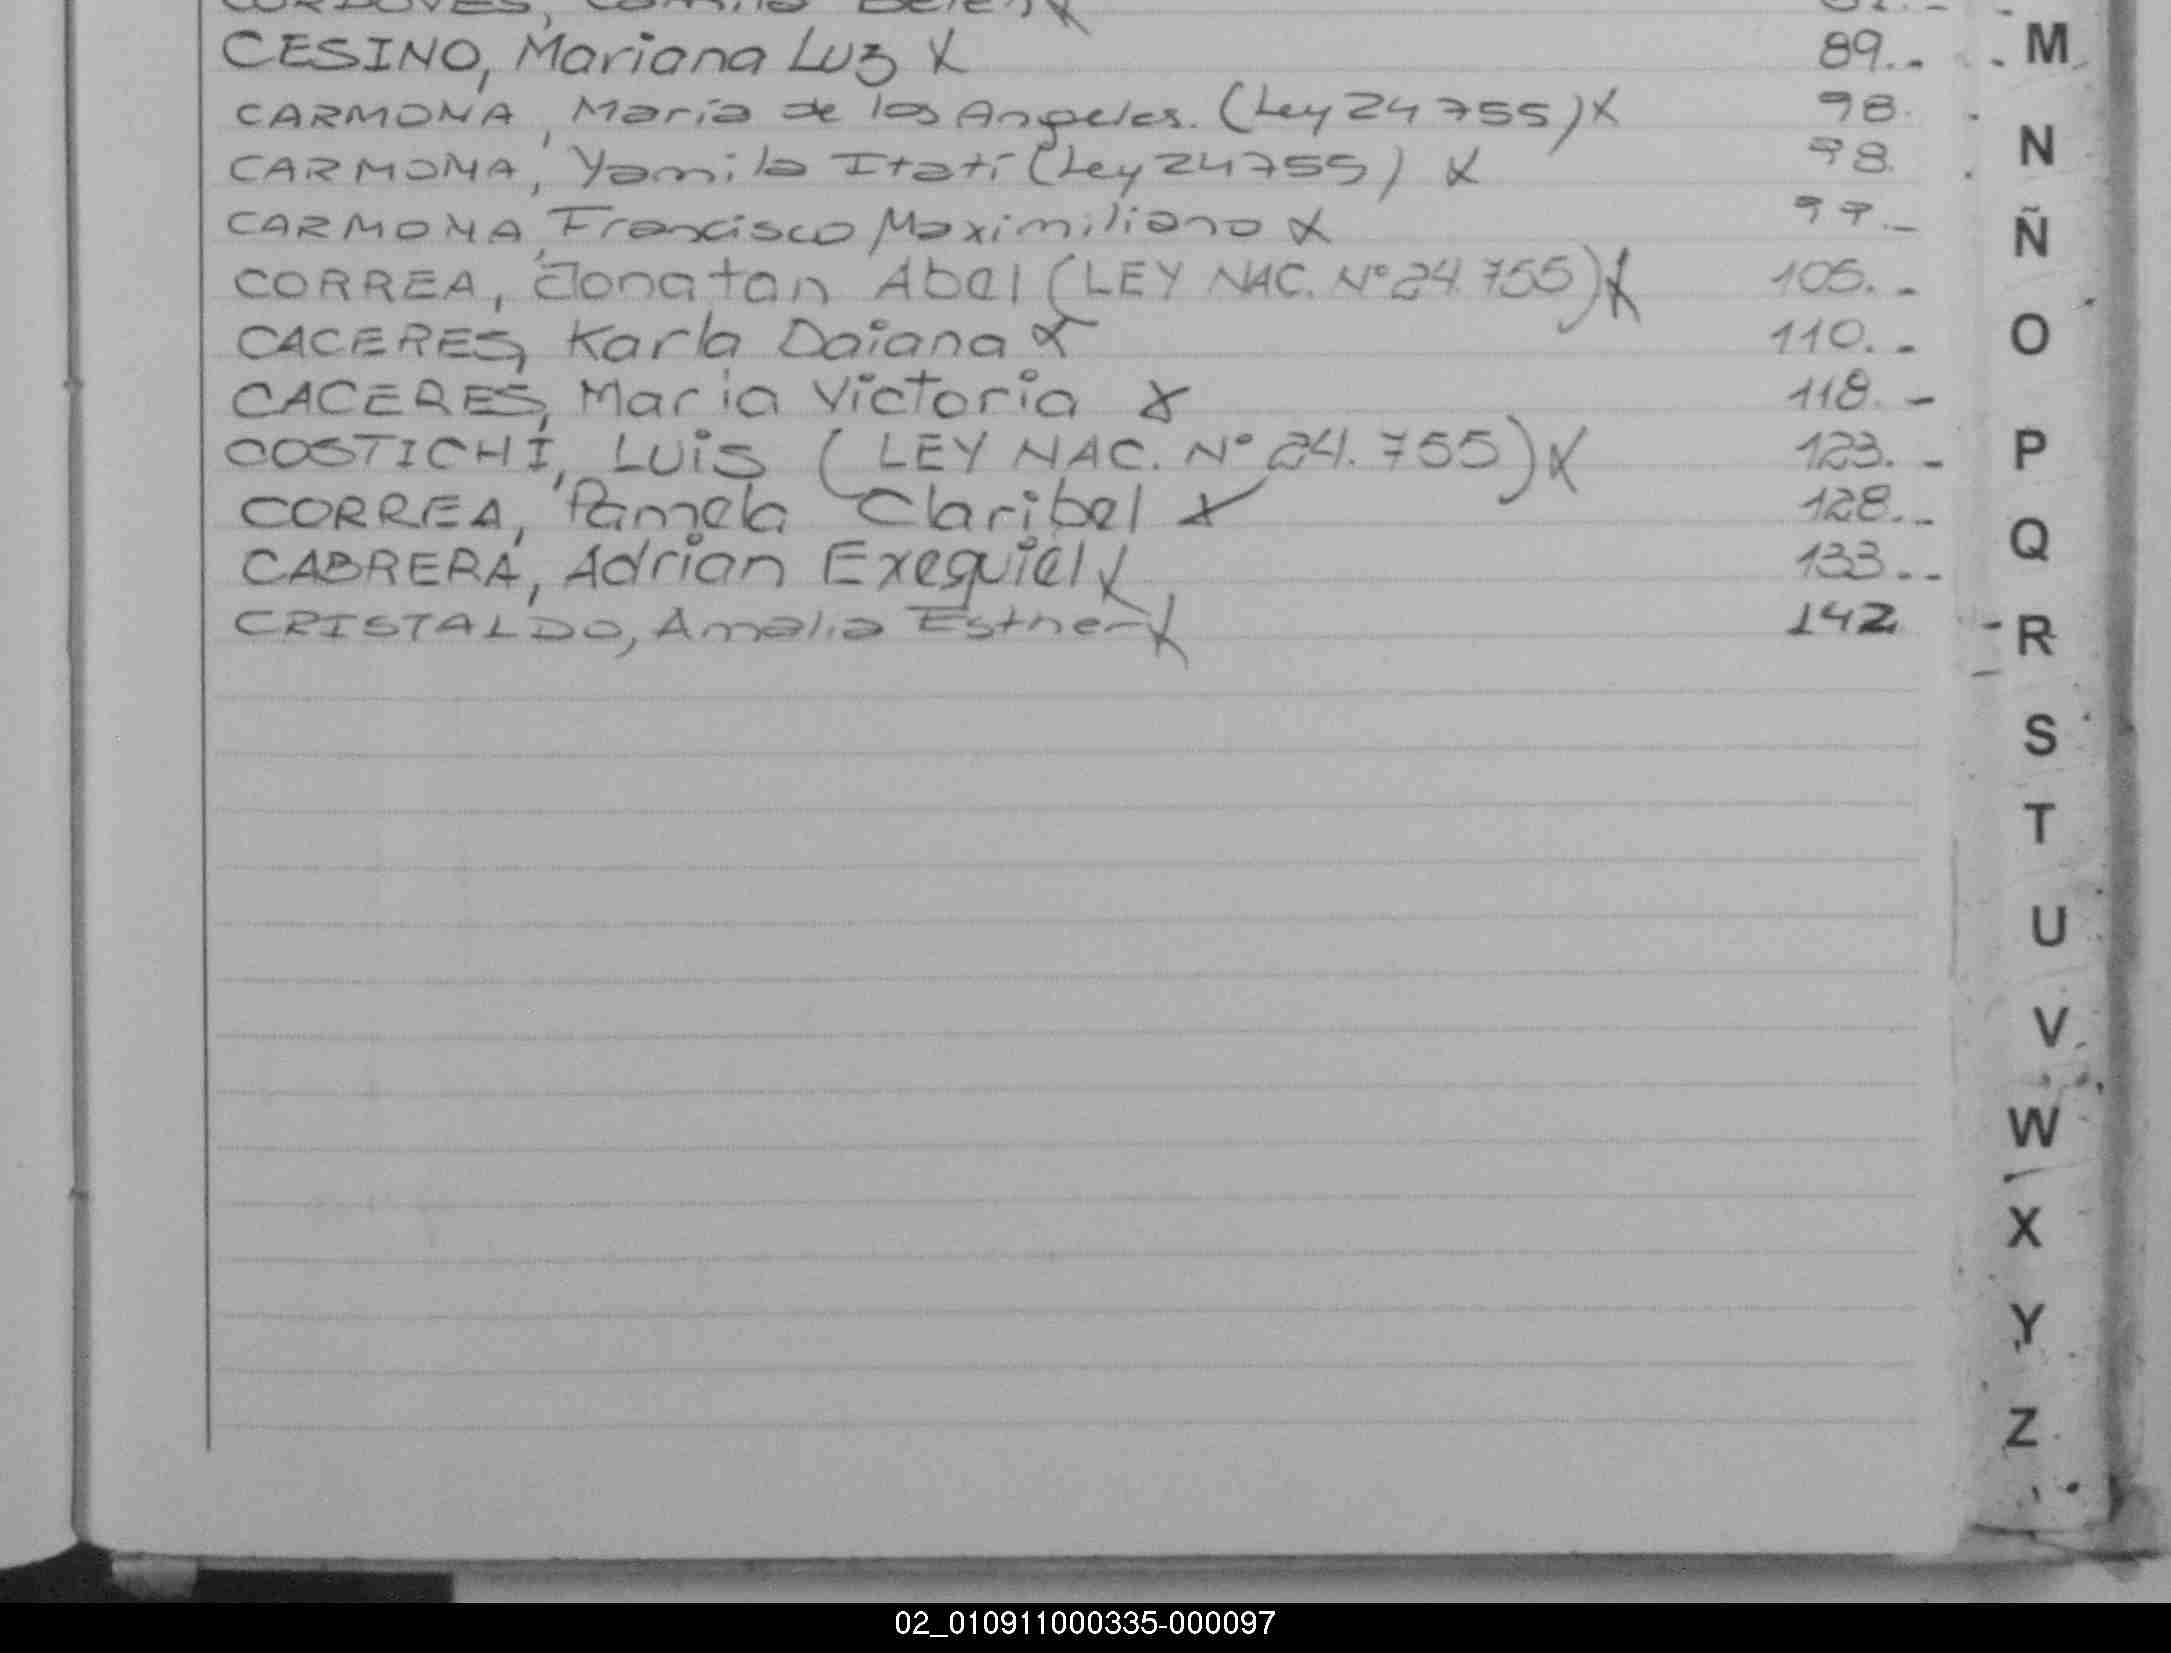 CORDOVES, Camila Belen X
CESINO, Mariana Luz X 89.-
CARMONA, María de los Angeles. (Ley 24755) X 98.
CARMONA, Yamila Itatí (Ley 24755) X 98.
CARMONA, Francisco Maximiliano X 99.-
CORREA, Jonatan Abel (LEY NAC. Nº 24.755) X 105.-
CACERES, Karla Daiana X 110.-
CACERES, Maria Victoria X 118.-
COSTICHI, LUIS (LEY NAC. Nº 24.755) X 123.-
CORREA, Pamela Claribel X 128.-
CABRERA, Adrian Exequiel X 133.-
CRISTALDO, Amalia Esther X 142
M
N
Ñ
O
P
Q
R
S
T
U
V
W
X
Y
Z
02_010911000335-000097